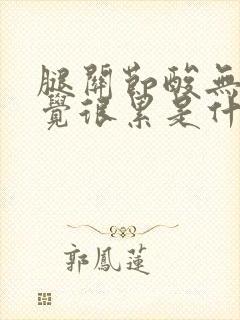 腿關節酸無
覺很累是什
郭鳳蓮